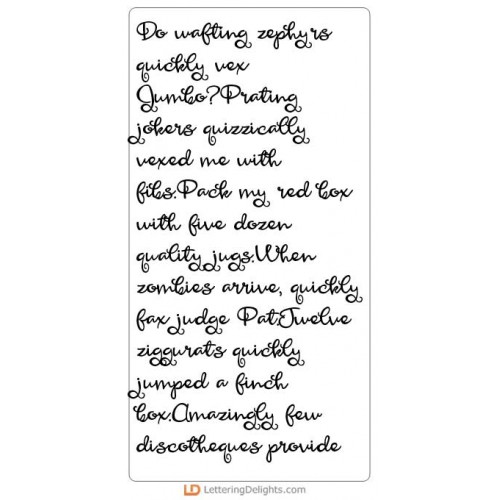 Do wafting zephyrs
quickly vex
Jumbo?Prating
jokers quizzically
vexed me with
fibs.Pack my red box
with five dozen
quality jugs.When
zombies arrive, quickly
fax judge Pat.Twelve
ziggurats quickly
jumped a finch
box.Amazingly few
discotheques provide
LD LetteringDelights.com